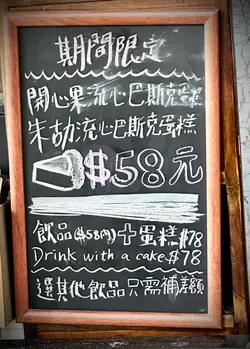 期間限定
開心果流心巴斯克蛋糕
朱古力流心巴斯克蛋糕
$58元
飲品($58內)+蛋糕$78
Drink with a cake $78
選其他飲品只需補差額